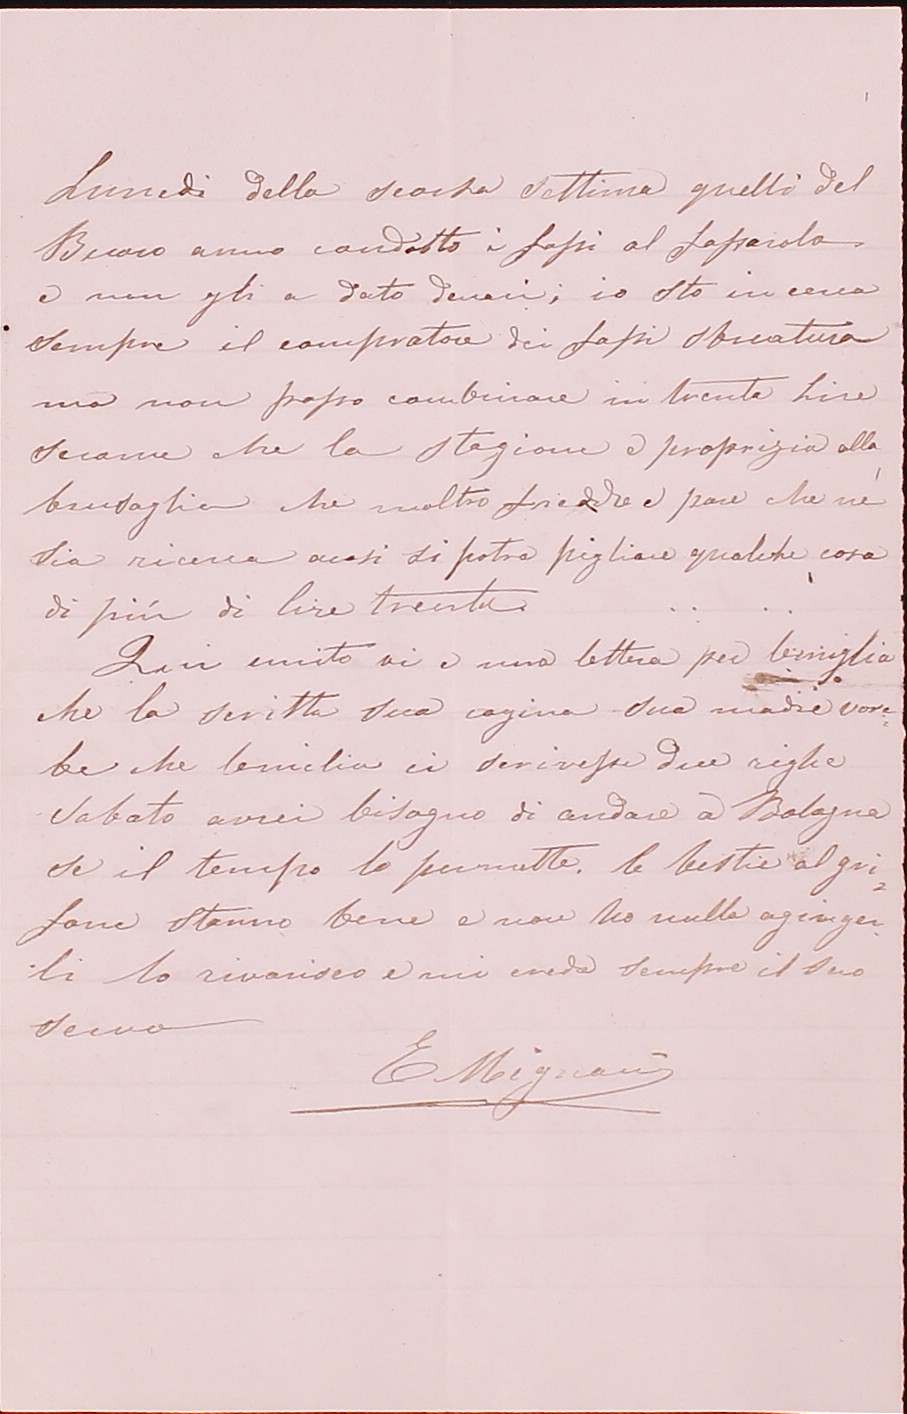 Lunedi della scorsa settima quelli del
Bucco anno condotto i fassi al fassarolo
e non gli a dato denari; io sto in cerca
sempre il compratore dei fassi sbucatura
ma non posso combinare in trenta Lire
secome che la stagione e proprizia alla
brusaglia che moltro freddo e pare che né
sia ricerca acosi si potra pigliare qualche cosa
di piú di lire trenta.
Qui unito vi e una lettera per lemiglia
che la scritta sua cogina sua madre vore=
be che lemilia ci scrivesse due righe
Sabato avrei bisogno di andare à Bologna
se il tempo lo permette. le bestie al gri=
fone stanno bene e non ho nulla agiunger=
li lo riverisco e mi creda sempre il suo
servo
E Mignani